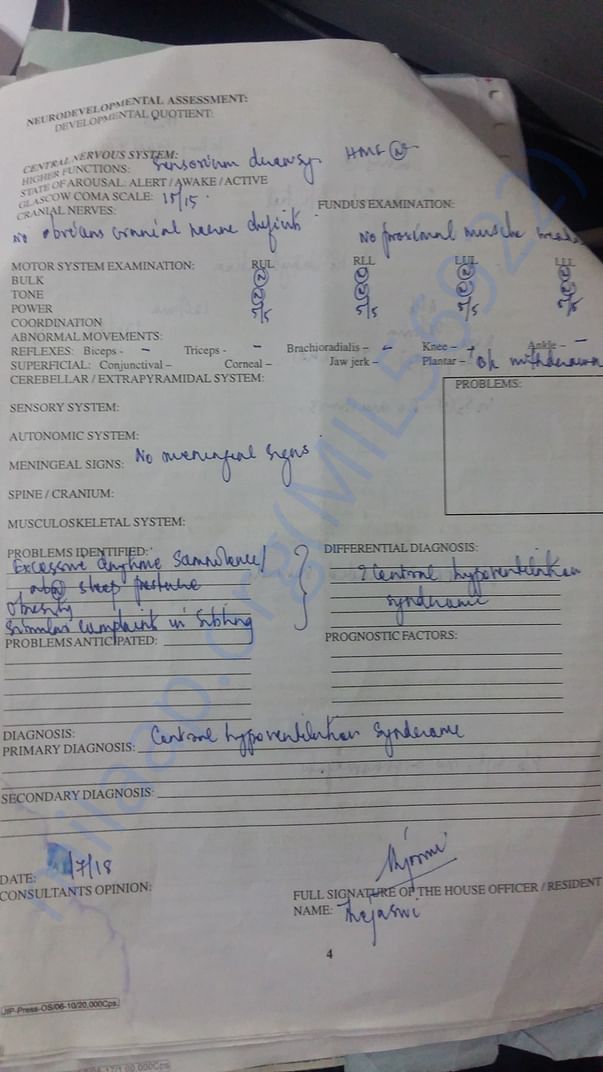 NEURODEVELOPMENTAL ASSESSMENT:
DEVELOPMENTAL QUOTIENT:
CENTRAL NERVOUS SYSTEM:
HIGHER FUNCTIONS: Sensorium drowsy. HMF (N)
STATE OF AROUSAL: ALERT / AWAKE / ACTIVE
GLASCOW COMA SCALE: 15/15
CRANIAL NERVES: FUNDUS EXAMINATION:
No obvious cranial nerve deficit No proximal muscle
MOTOR SYSTEM EXAMINATION: RUL RLL LUL LLL
BULK (N) (N) (N) (N)
TONE (N) (N) (N) (N)
POWER 5/5 5/5 5/5 5/5
COORDINATION
ABNORMAL MOVEMENTS:
REFLEXES: Biceps - – Triceps - – Brachioradialis – – Knee – + Ankle – –
SUPERFICIAL: Conjunctival – Corneal – Jaw jerk – Plantar – withdrawal
CEREBELLAR / EXTRAPYRAMIDAL SYSTEM: PROBLEMS:
SENSORY SYSTEM:
AUTONOMIC SYSTEM:
MENINGEAL SIGNS: No meningeal signs
SPINE / CRANIUM:
MUSCULOSKELETAL SYSTEM:
PROBLEMS IDENTIFIED: DIFFERENTIAL DIAGNOSIS:
Excessive daytime Somnolence/ ? Central hypoventilation
sleep posture syndrome
Obesity
Similar complaint in Sibling
PROBLEMS ANTICIPATED: PROGNOSTIC FACTORS:
DIAGNOSIS:
PRIMARY DIAGNOSIS: Central hypoventilation Syndrome
SECONDARY DIAGNOSIS:
DATE: /7/18
CONSULTANTS OPINION: FULL SIGNATURE OF THE HOUSE OFFICER / RESIDENT
NAME: Thejaswi
4
JIP-Press-OS/06-10/20,000Cps.
milaap.org(MIL56922)